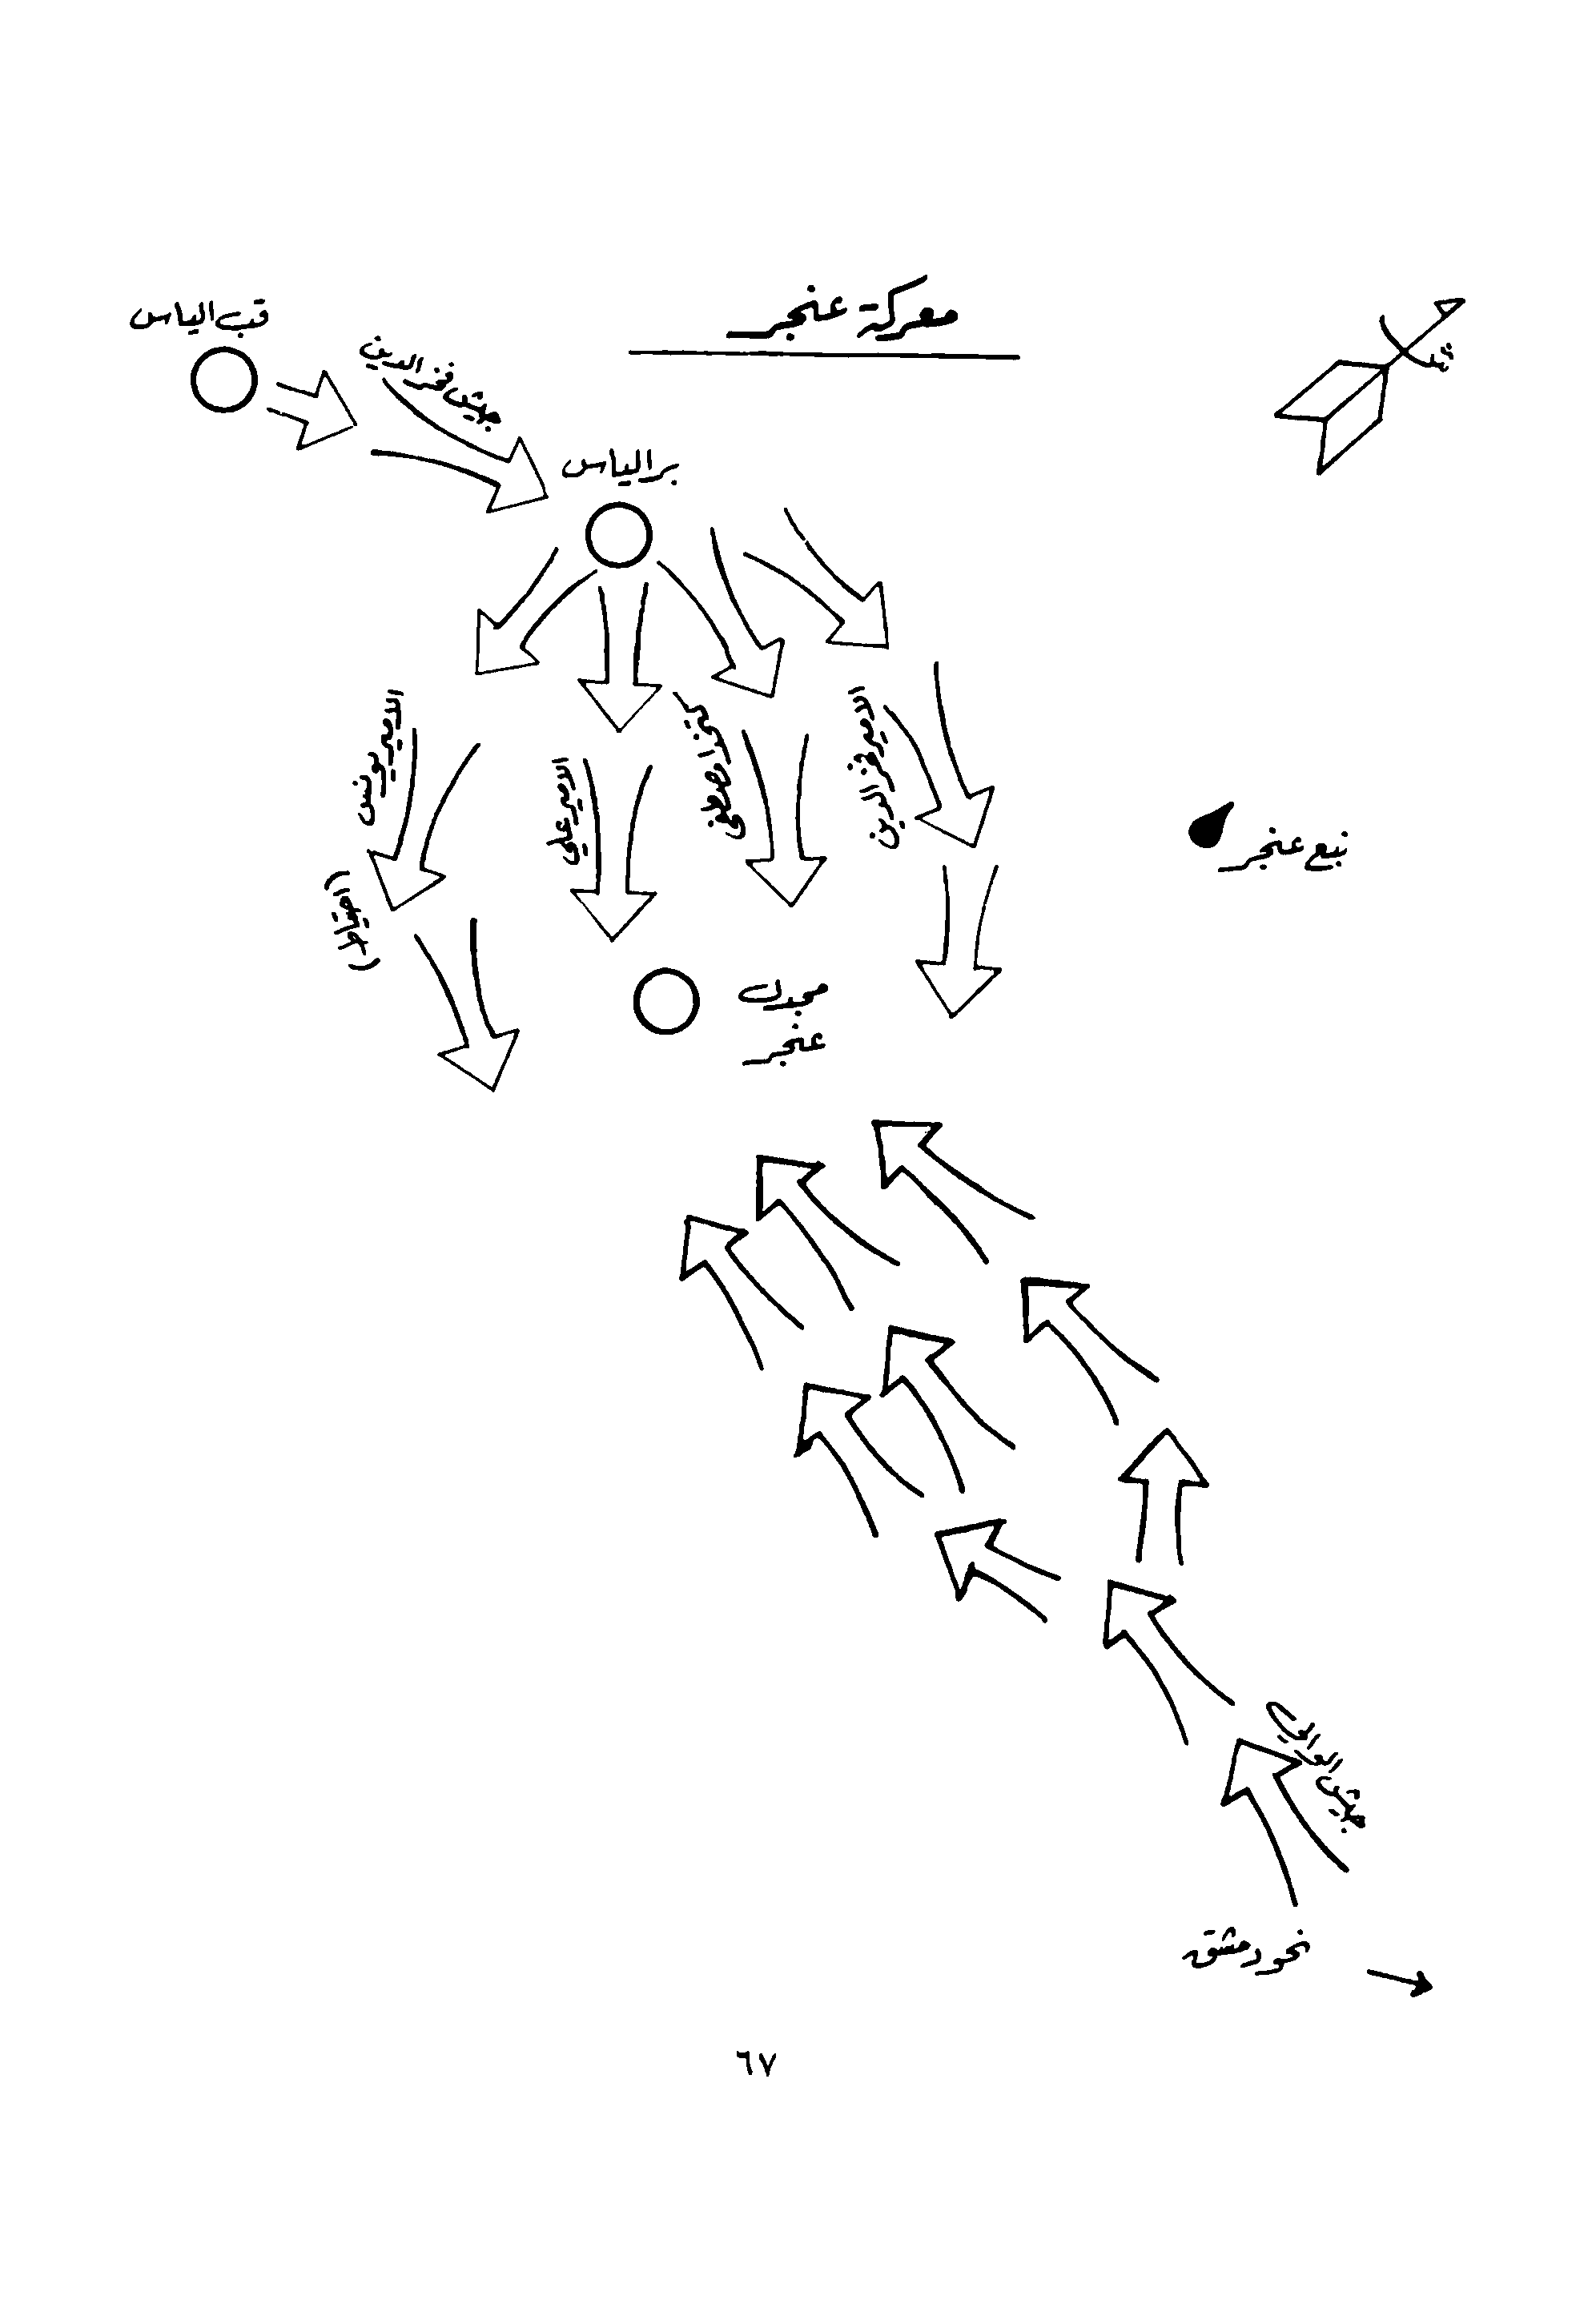 معركة عنجر
شمال
قب الياس
جيش فخر الدين
بر الياس
الامير يونس
(احتياط)
الامير علي
كتخدا مصطفى
الامير فخر الدين
نبع عنجر
مجدل
عنجر
جيش الوالي
نحو دمشق
٦٧